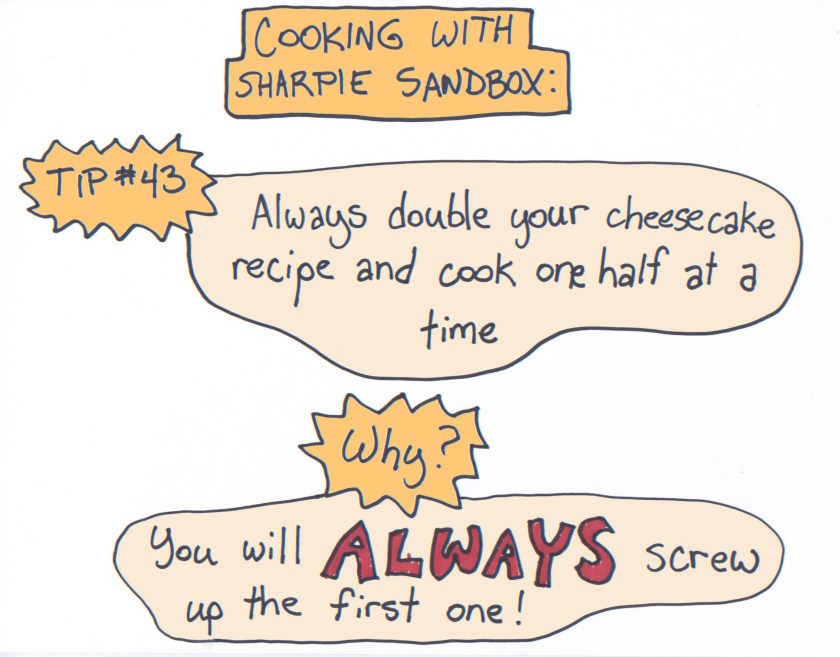 COOKING WITH
SHARPIE SANDBOX:
TIP #43
Always double your cheesecake
recipe and cook one half at a
time
Why?
You will ALWAYS screw
up the first one!